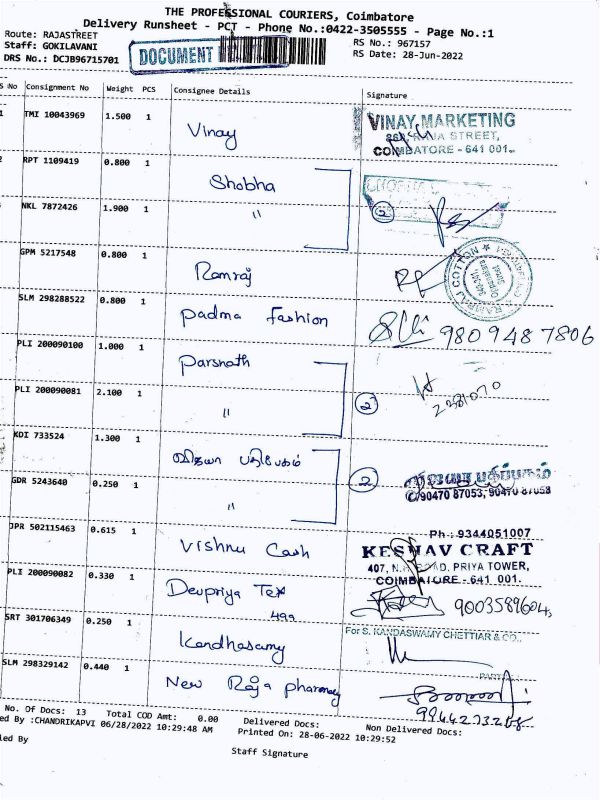 THE PROFESSIONAL COURIERS, Coimbatore
Delivery Runsheet - PCT - Phone No.:0422-3505555 - Page No.:1
Route: RAJASTREET
Staff: GOKILAVANI
DRS No.: DCJB96715701
DOCUMENT
RS No.: 967157
RS Date: 28-Jun-2022
S No Consignment No Weight PCS Consignee Details Signature
TMI 10043969 1.500 1 Vinay
VINAY MARKETING
RAJA STREET,
COIMBATORE - 641 001.
RPT 1109419 0.800 1 Shobha
NKL 7872426 1.900 1 "
2
GPM 5217548 0.800 1 Ramraj
RAMRAJ COTTON
SLM 298288522 0.800 1 Padma Fashion
9809487806
PLI 200090100 1.000 1 Parsnath
PLI 200090081 2.100 1 "
2
KDI 733524 1.300 1 விஜயா பதிப்பகம்
GDR 5243640 0.250 1 "
2
விஜயா பதிப்பகம்
90470 87053, 90470 87058
JPR 502115463 0.615 1 Vishnu Cash
Ph : 9344051007
KESHAV CRAFT
407, N.H. ROAD, PRIYA TOWER,
COIMBATORE - 641 001.
PLI 200090082 0.330 1 Devpriya Tex
499
9003589604
SRT 301706349 0.250 1 Kandhasamy
For S. KANDASWAMY CHETTIAR & CO.,
SLM 298329142 0.440 1 New Raja pharmacy
No. Of Docs: 13 Total COD Amt: 0.00 Delivered Docs: Non Delivered Docs:
ed By :CHANDRIKAPVI 06/28/2022 10:29:48 AM Printed On: 28-06-2022 10:29:52
led By
Staff Signature